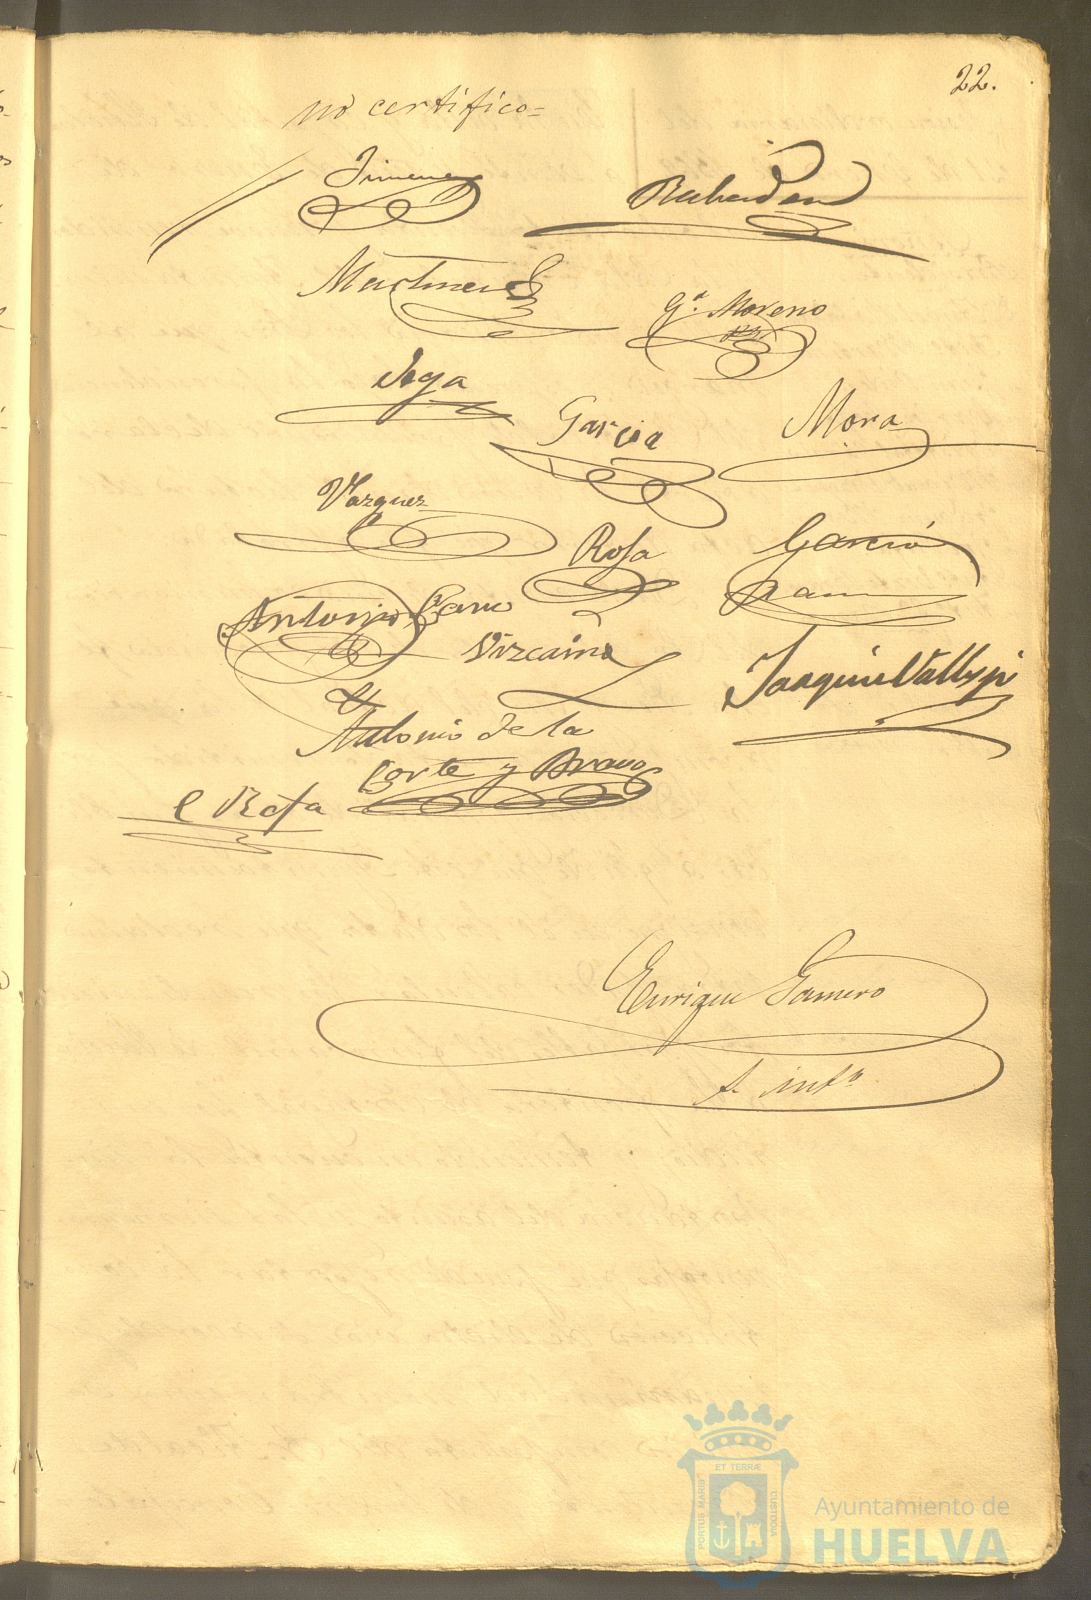 22.
no certifico=
Jimenez
Martinez
Gª Moreno
Vega
Garcia
Mora
Vazquez
Rosa
Garcia
Antonio Cano
Vizcaino
Joaquin Vallejo
Antonio de la
Corte y Bravo
Enrique Gamero
PORTUS MARIS ET TERRÆ CUSTODIA
Ayuntamiento de
HUELVA